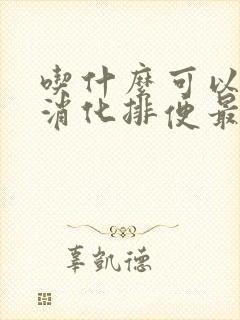 喫什麼可以
消化排便最
辜凱德